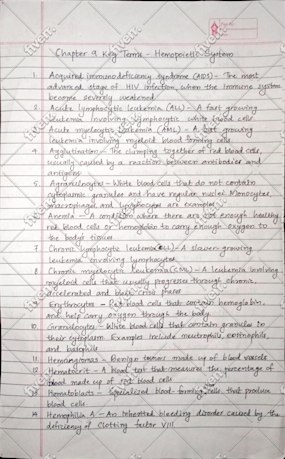 Chapter 9 Key Terms - Hemopoietic System
1. Acquired immunodeficiency syndrome (AIDS) - The most
advanced stage of HIV infection, when the immune system
become severely weakened
2. Acute lymphocytic leukemia (ALL) - A fast growing
leukemia involving lymphocytic white blood cells
3. Acute myelocytic leukemia (AML) - A fast growing
leukemia involving myeloid blood forming cells
4. Agglutination - The clumping together of red blood cells,
usually caused by a reaction between antibodies and
antigens
5. Agranulocytes - White blood cells that do not contain
cytoplasmic granules and have regular nuclei. Monocytes,
macrophages and lymphocytes are examples
6. Anemia - A condition where there are not enough healthy
red blood cells or hemoglobin to carry enough oxygen to
the body's tissues
7. Chronic lymphocytic leukemia (CLL) - A slower growing
leukemia involving lymphocytes
8. Chronic myelocytic leukemia (CML) - A leukemia involving
myeloid cells that usually progresses through chronic,
accelerated and blast crisis phases
9. Erythrocytes - Red blood cells that contain hemoglobin,
and help carry oxygen through the body
10. Granulocytes - White blood cells that contain granules in
their cytoplasm Examples include neutrophils, eosinophils,
and basophils
11. Hemangiomas - Benign tumors made up of blood vessels
12. Hematocrit - A blood test that measures the percentage of
blood made up of red blood cells
13. Hematoblasts - Specialized blood-forming cells that produce
blood cells
14. Hemophilia A - An inherited bleeding disorder caused by the
deficiency of Clotting factor VIII.